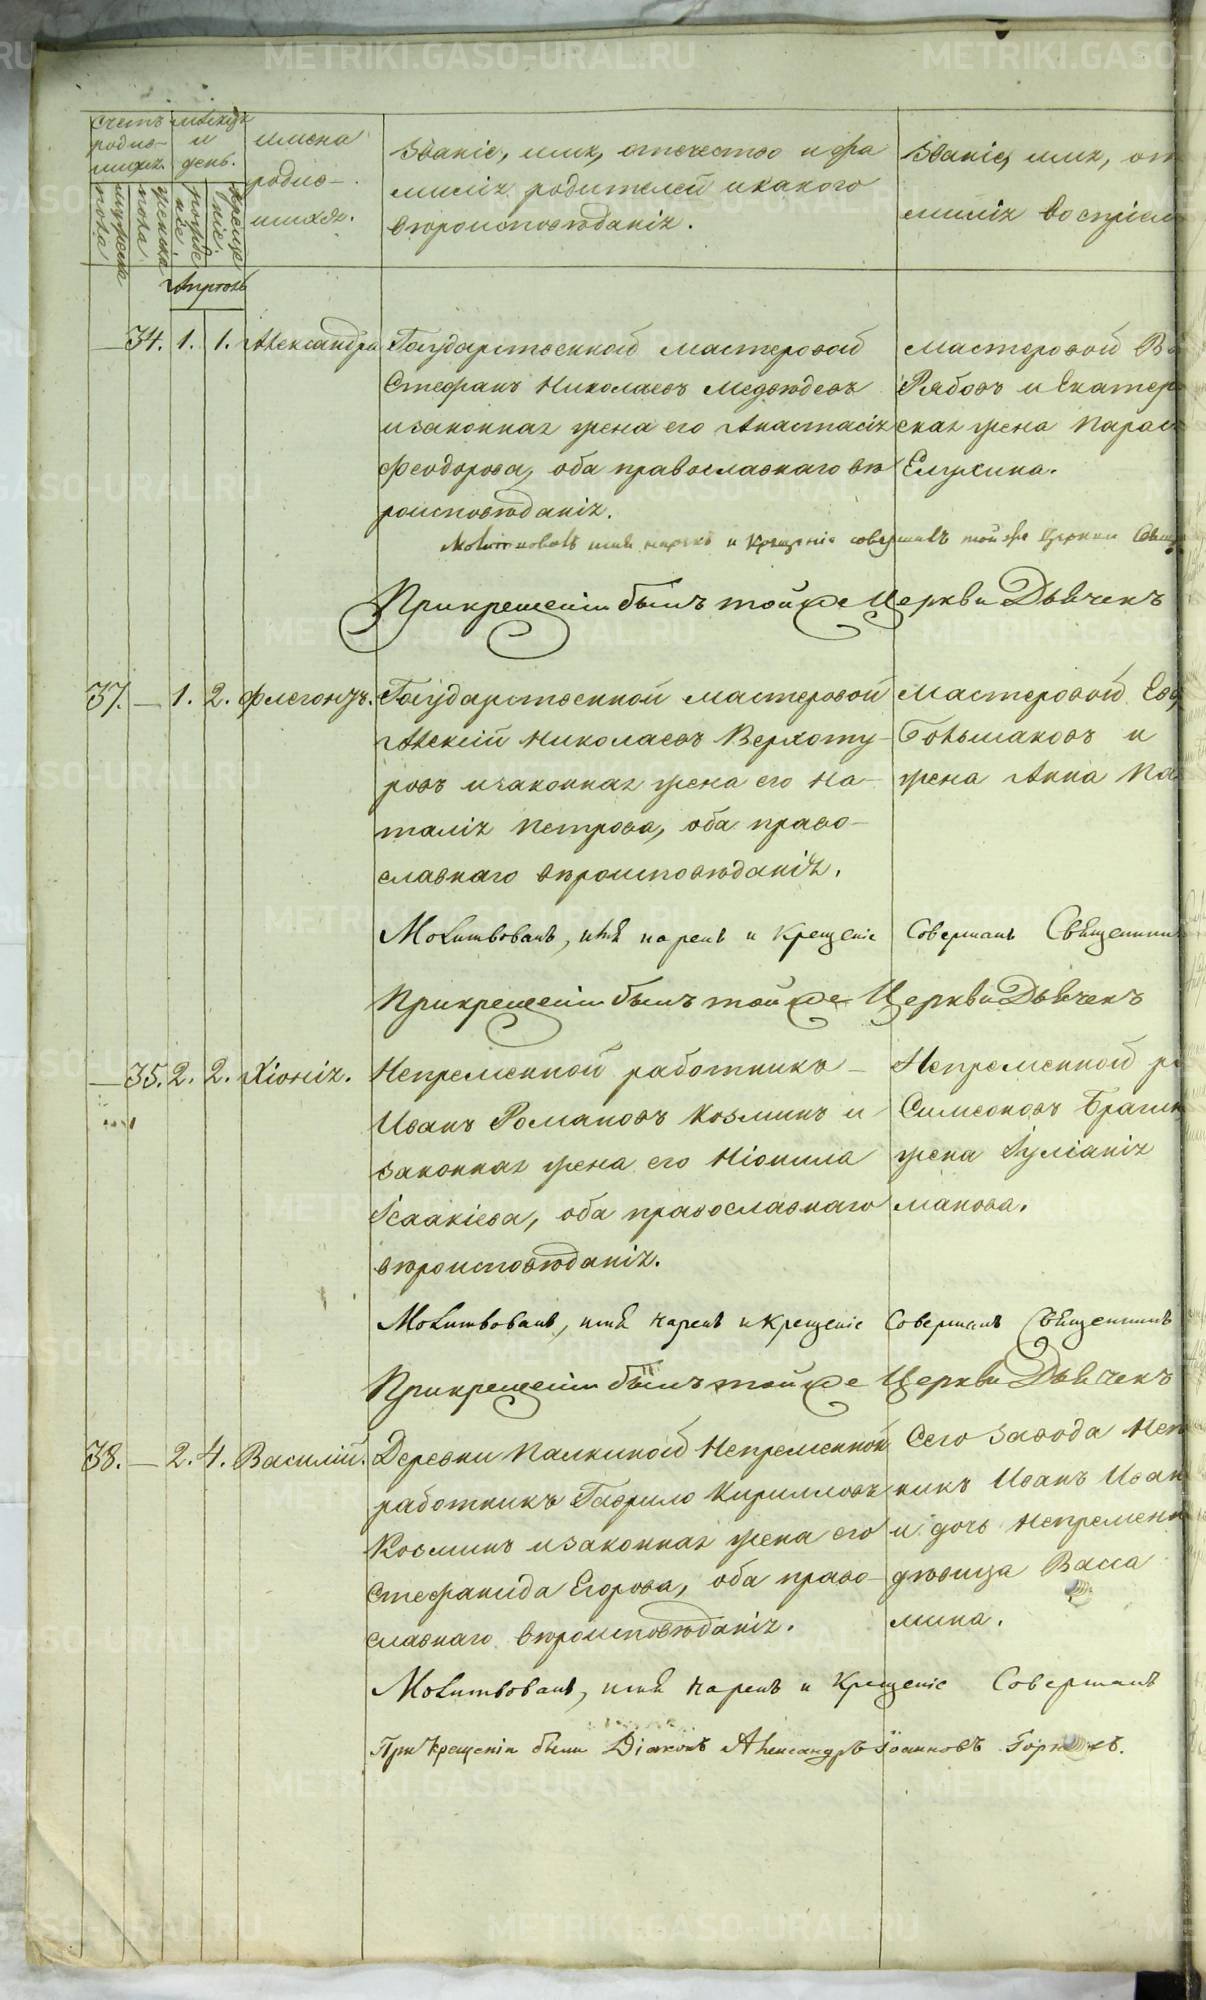 METRIKI.GASO-URAL.RU
Счетъ родившихся.
мужеска пола
женска пола
Месяцъ и день.
рожденіе.
крещеніе.
имена родившихся.
Званіе, имя, отечество и фамилія родителей и какого вѣроисповѣданія.
Званіе, имя, от
милія воспріем
Апрѣль
— 34. 1. 1. Александра
Государственной мастеровой
Стефанъ Николаевъ Медвѣдевъ
и законная жена его Анастасія
Феодорова, оба православнаго вѣ
роисповѣданія.
Мастеровой Ва
Рябовъ и Екатер
ская жена Парас
Елухина.
Молитвовалъ имя нарекъ и крещеніе совершилъ той же Церкви Свящ
При крещеніи былъ той же Церкви Дьячекъ
37. — 1. 2. Флегонтъ.
Государственной мастеровой
Алексій Николаевъ Верхоту-
ровъ и законная жена его На-
талія Петрова, оба право-
славнаго вѣроисповѣданія.
Мастеровой Евд
Большаковъ и
жена Анна Па
Молитвовалъ, имя нарекъ и крещеніе Совершалъ Священник
При крещеніи былъ той же Церкви Дьячекъ
— 35. 2. 2. Хіонія.
Непременной работникъ —
Иванъ Романовъ Козминъ и
законная жена его Ніонила
Ісаакіева, оба православнаго
вѣроисповѣданія.
Непременной ра
Симеоновъ Брагин
жена Іуліанія
манова.
Молитвовалъ, имя нарекъ и крещеніе Совершалъ Священникъ
При крещеніи былъ той же Церкви Дьячекъ
38. — 2. 4. Василій.
Деревни Палкиной Непременной
работникъ Гаврило Кирилловъ
Козминъ и законная жена его
Стефанида Егорова, оба право-
славнаго вѣроисповѣданія.
Сего завода Неп
никъ Иванъ Иван
и дочь Непременн
дѣвица Васса
мина.
Молитвовалъ, имя нарекъ и Крещеніе Совершалъ
При крещеніи были Діаконъ Александръ Іоанновъ